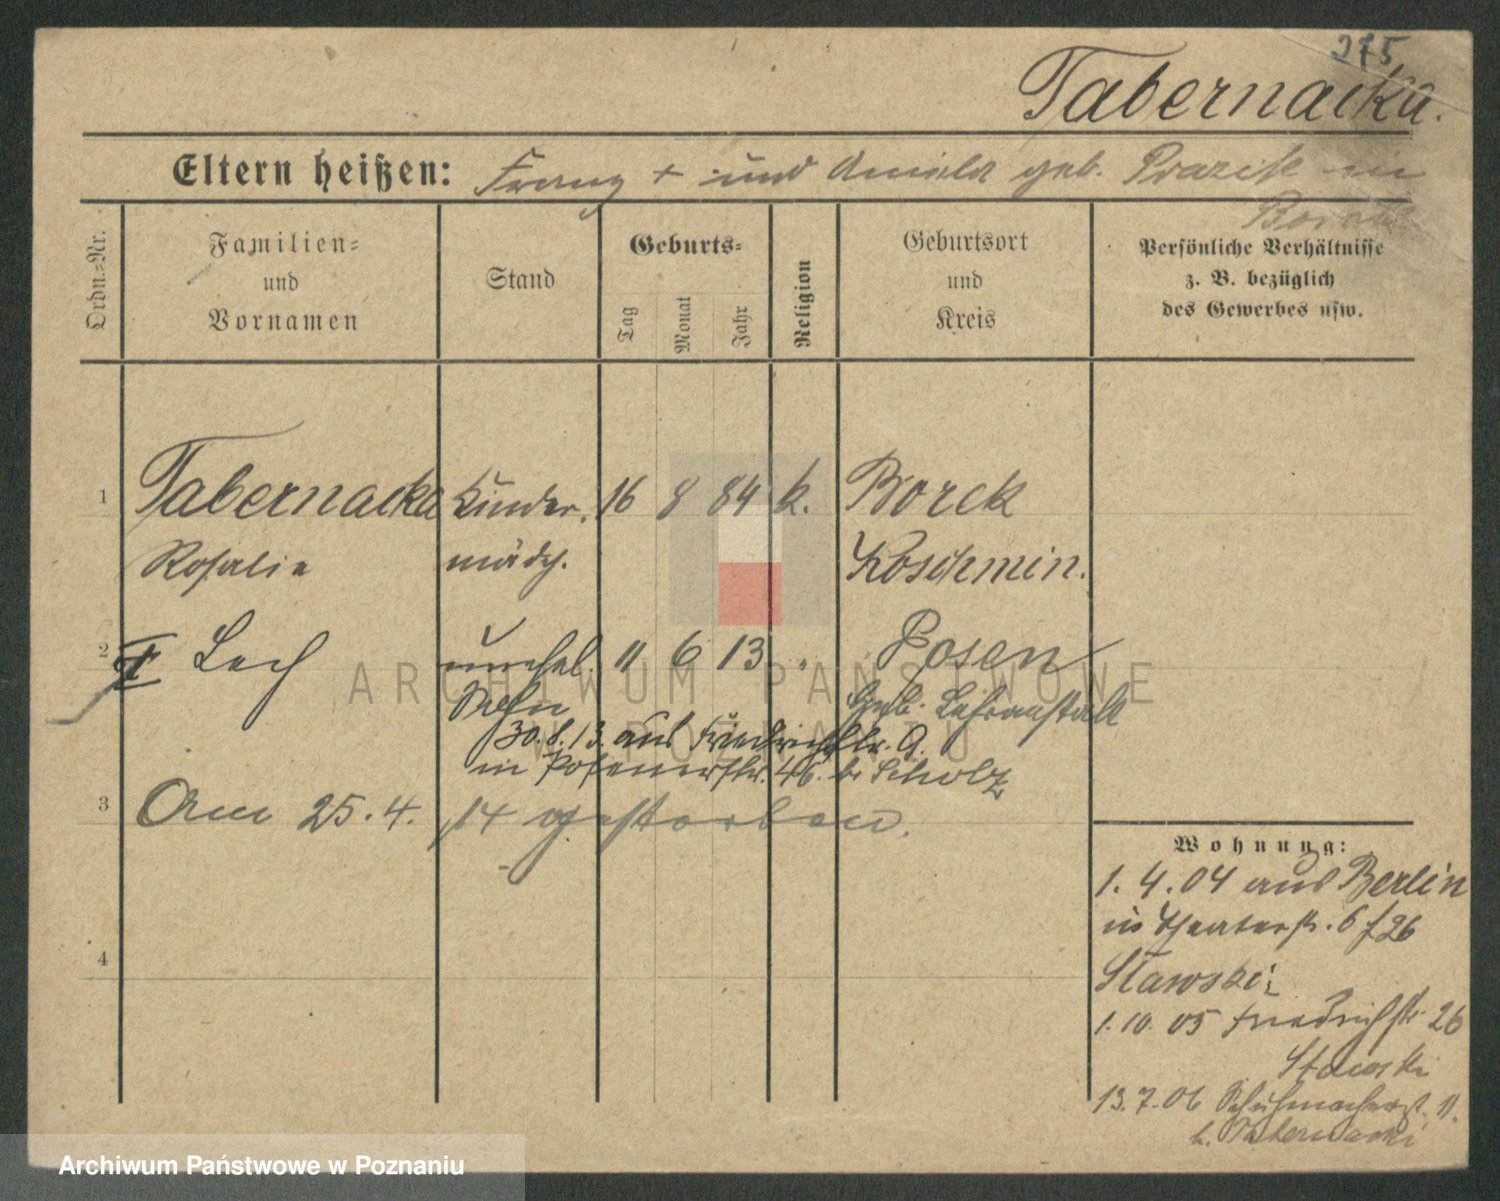 275
Tabernacka.
Eltern heißen: Franz + und Aniela geb. Prazik in
Borek
Ordn.-Nr.
Familien-
und
Vornamen
Stand
Geburts-
Tag
Monat
Jahr
Religion
Geburtsort
und
Kreis
Persönliche Verhältnisse
z. B. bezüglich
des Gewerbes usw.
1 Tabernacka Kinder. 16 8 84 k. Borek
Rosalie mädch. Koschmin.
2 I Lech unehel. 11 6 13 " Posen
Sohn Geb. Lehranstalt
30.8.13. aus Friedrichstr. 9.
in Posenerstr. 46. b. Scholz
3 Am 25.4.14 gestorben.
4
Wohnung:
1.4.04 aus Berlin
in Theaterstr. 6 f 26
Stawski
1.10.05 Friedrichstr 26
Stawski
13.7.06 Schuhmacherst. 11.
b. Tabernacki
ARCHIWUM PAŃSTWOWE
W POZNANIU
Archiwum Państwowe w Poznaniu